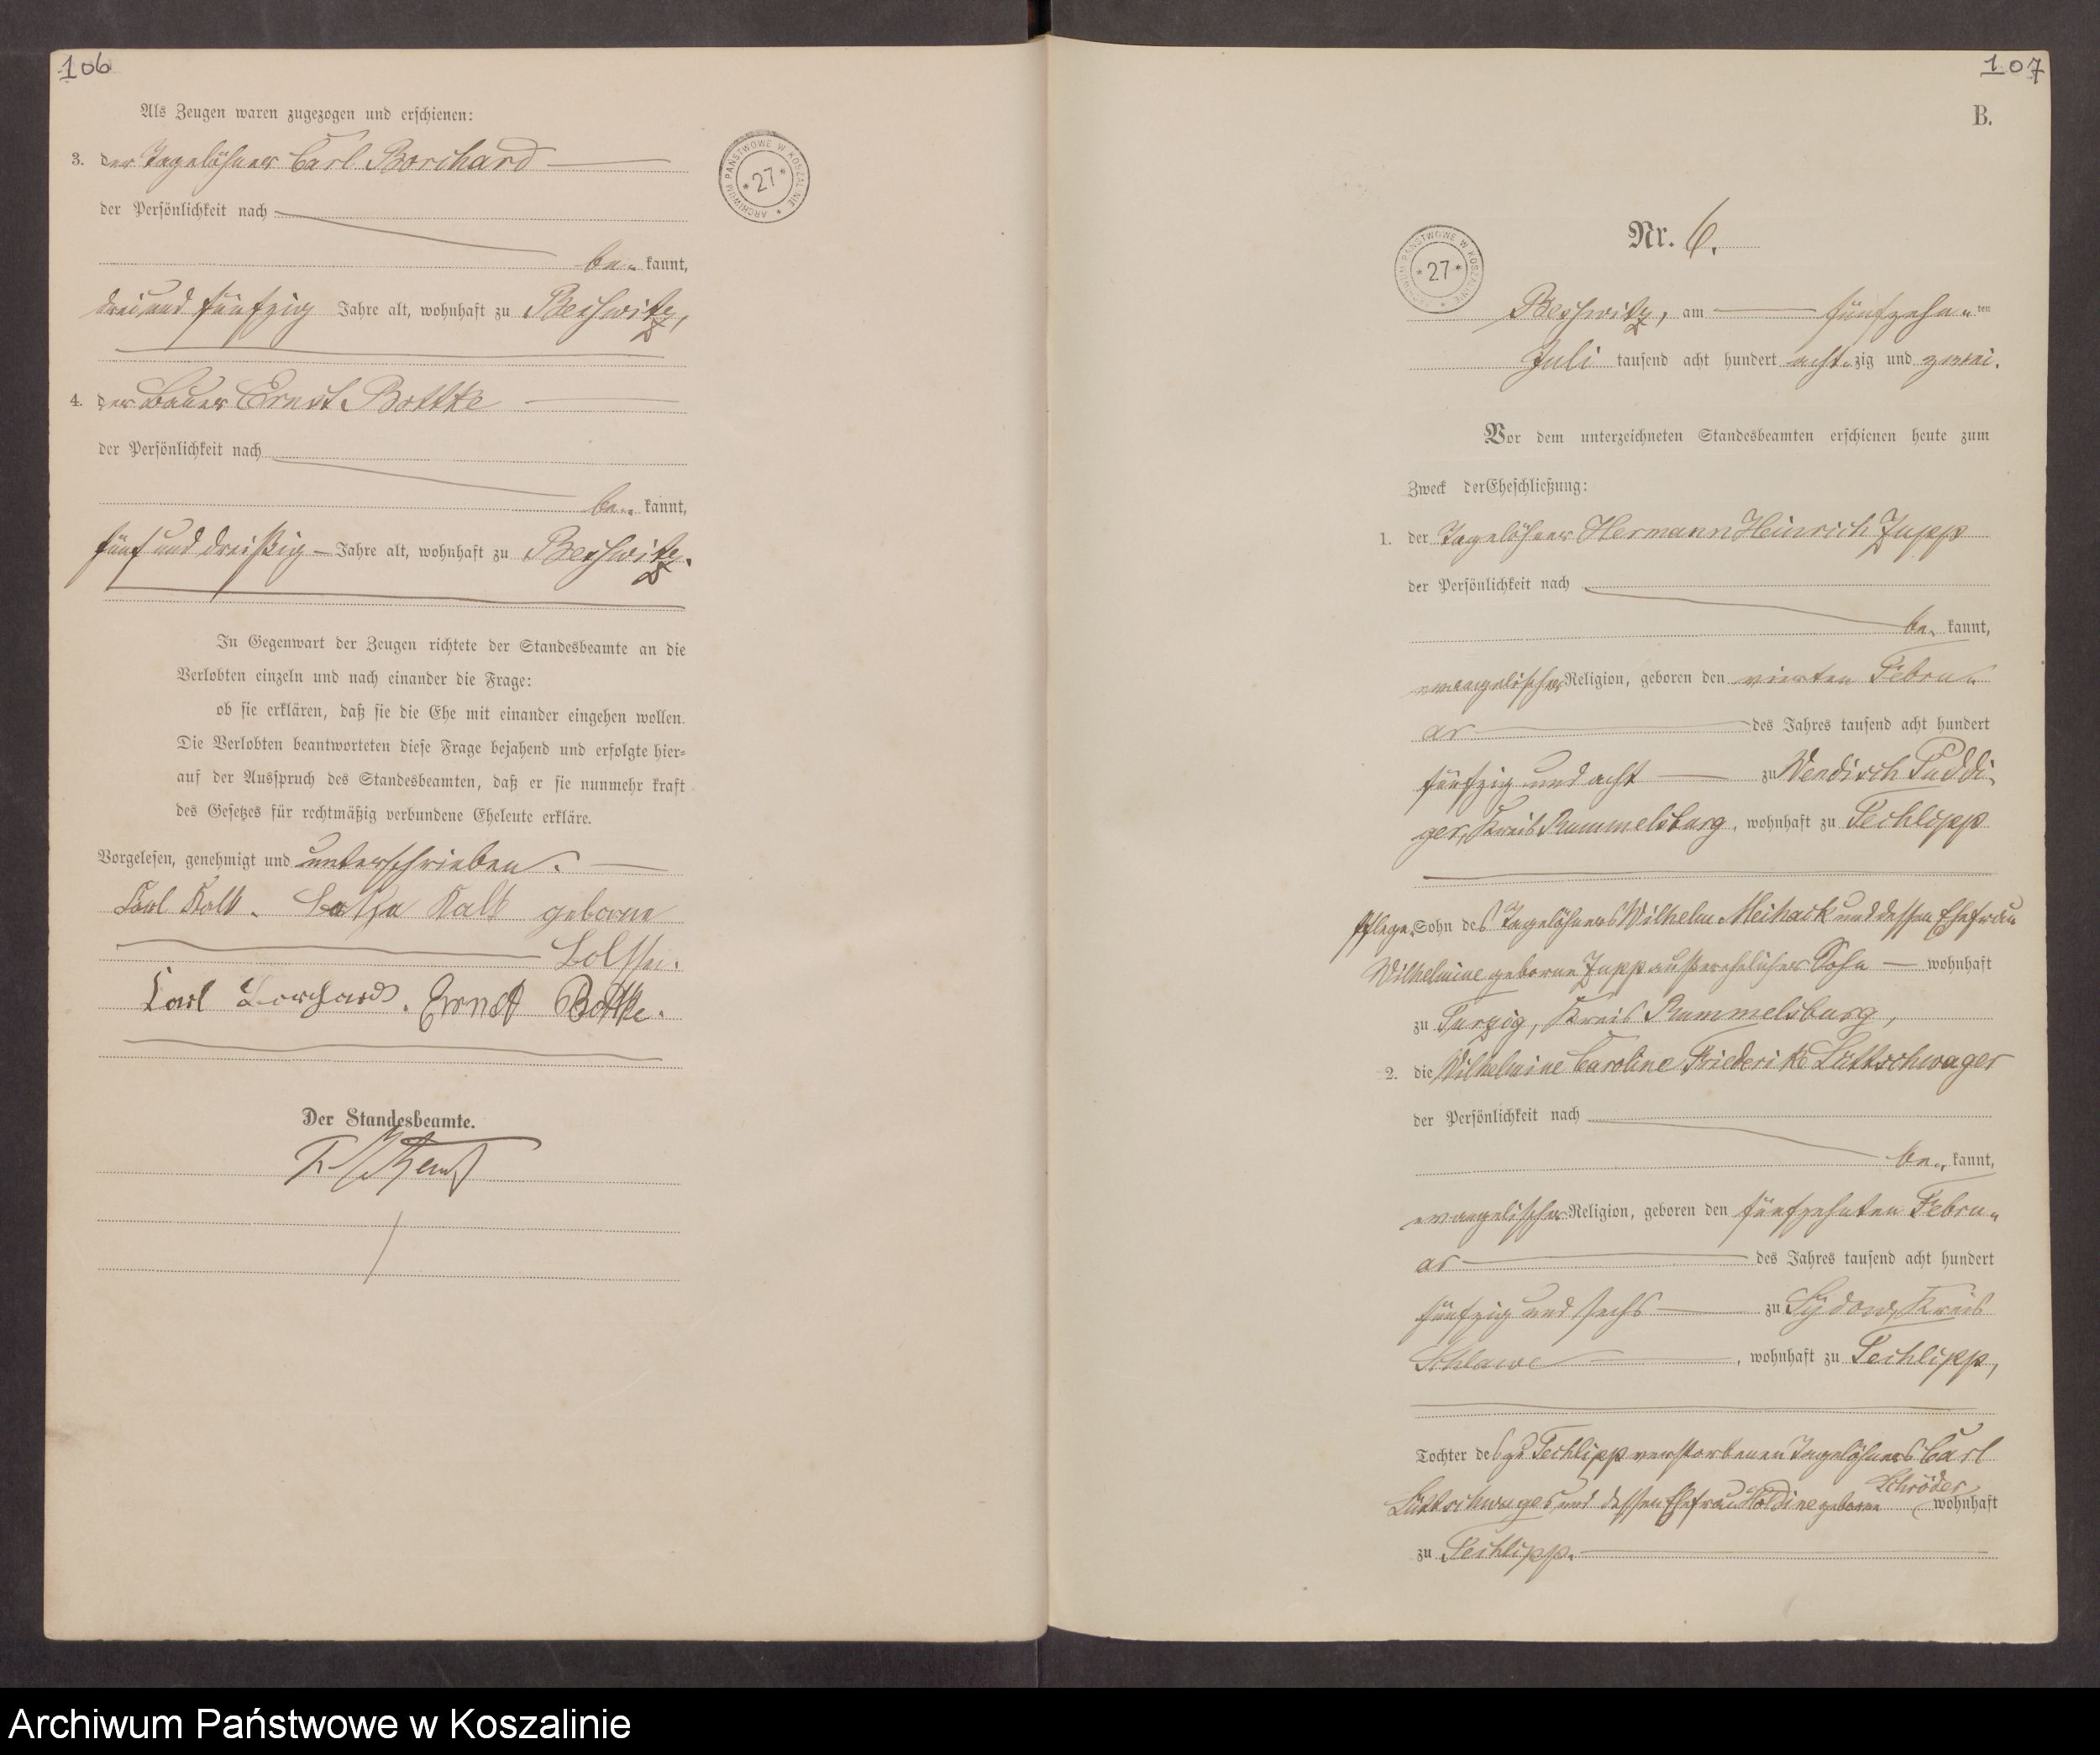 106
Als Zeugen waren zugezogen und erschienen:
3. der Tagelöhner Carl Borchard
der Persönlichkeit nach
be- kannt,
drei und fünfzig Jahre alt, wohnhaft zu Beßwitz,
4. der Bauer Ernst Bottke
der Persönlichkeit nach
be- kannt,
fünf und dreißig Jahre alt, wohnhaft zu Beßwitz.
In Gegenwart der Zeugen richtete der Standesbeamte an die
Verlobten einzeln und nach einander die Frage:
ob sie erklären, daß sie die Ehe mit einander eingehen wollen.
Die Verlobten beantworteten diese Frage bejahend und erfolgte hier-
auf der Ausspruch des Standesbeamten, daß er sie nunmehr kraft
des Gesetzes für rechtmäßig verbundene Eheleute erkläre.
Vorgelesen, genehmigt und unterschrieben.
Karl geborne
Carl Borchard. Ernst Bottke.
Der Standesbeamte.
ARCHIWUM PAŃSTWOWE W KOSZALINIE
* 27 *
107
B.
ARCHIWUM PAŃSTWOWE W KOSZALINIE
* 27 *
Nr. 6.
Beßwitz, am fünfzehn-ten
Juli tausend acht hundert acht-zig und zwei.
Vor dem unterzeichneten Standesbeamten erschienen heute zum
Zweck der Eheschließung:
1. der Tagelöhner Hermann Heinrich Jupp
der Persönlichkeit nach
be- kannt,
evangelischer Religion, geboren den vierten Febru-
ar des Jahres tausend acht hundert
fünfzig und acht zu Wendisch Puddi-
ger, Kreis Rummelsburg, wohnhaft zu Techlipp
Pflege-Sohn des Tagelöhners Wilhelm und dessen Ehefrau
Wilhelmine geborne Jupp außerehelicher Sohn wohnhaft
zu Turzig, Kreis Rummelsburg,
2. die Wilhelmine Caroline Friederike Lüttschwager
der Persönlichkeit nach
be- kannt,
evangelischer Religion, geboren den fünfzehnten Febru-
ar des Jahres tausend acht hundert
fünfzig und sechs zu Sydow, Kreis
Schlawe, wohnhaft zu Techlipp,
Tochter des zu Techlipp verstorbenen Tagelöhners Carl
Lüttschwager und dessen Ehefrau geborne Schröder wohnhaft
zu Techlipp.
Archiwum Państwowe w Koszalinie